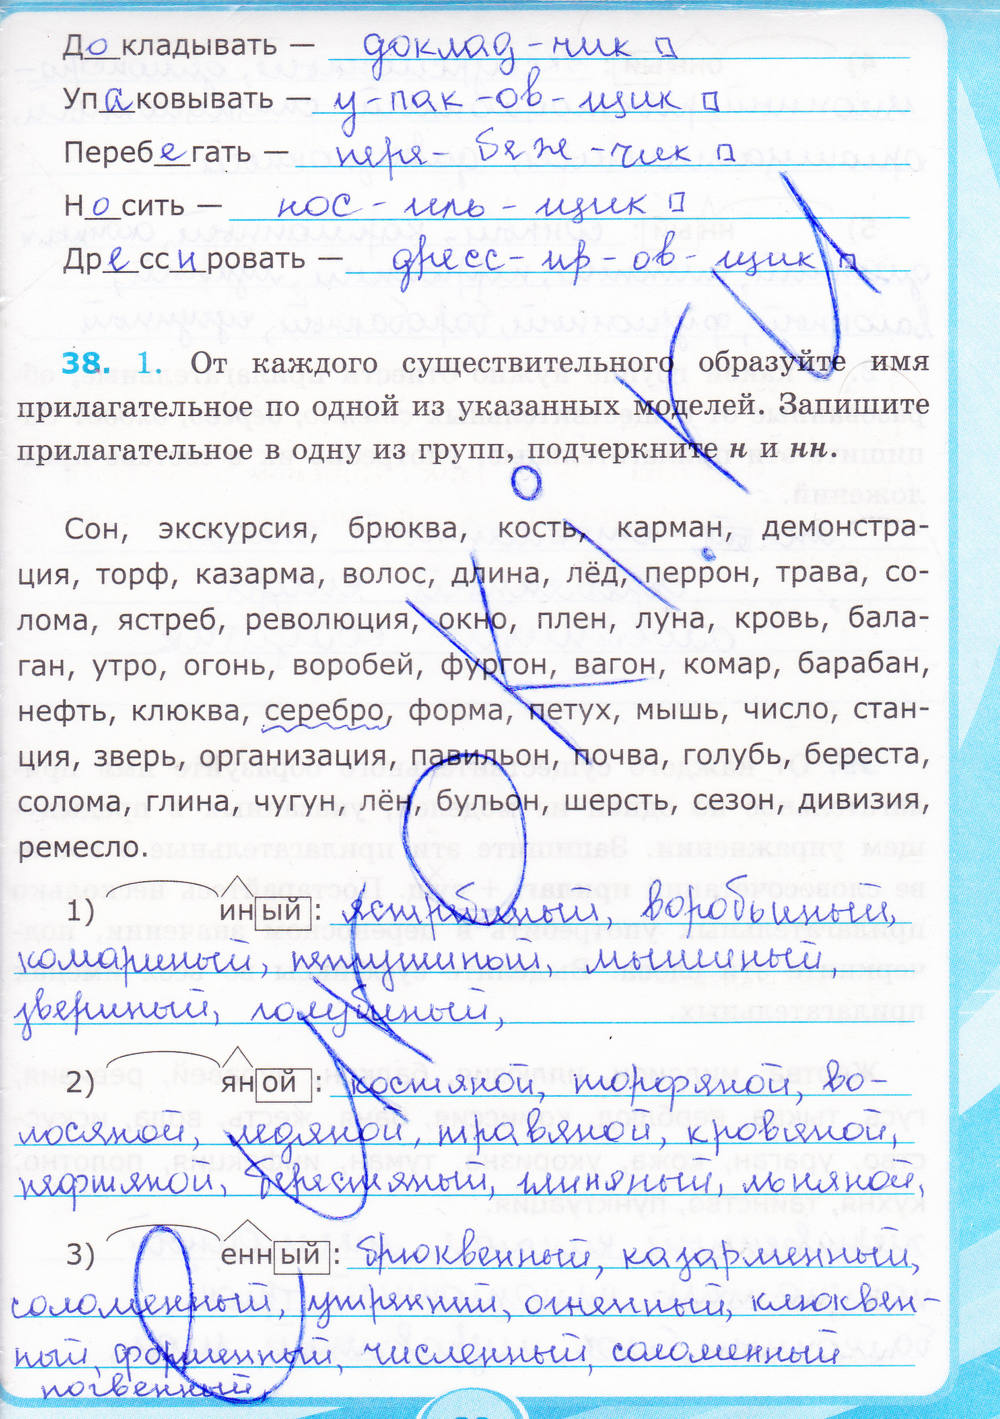 До кладывать — доклад-чик
Упаковывать — у-пак-ов-щик
Перебегать — пере-беж-чик
Носить — нос-иль-щик
Дрессировать — дресс-ир-ов-щик
38. 1. От каждого существительного образуйте имя
прилагательное по одной из указанных моделей. Запишите
прилагательное в одну из групп, подчеркните н и нн.
Сон, экскурсия, брюква, кость, карман, демонстра-
ция, торф, казарма, волос, длина, лёд, перрон, трава, со-
лома, ястреб, революция, окно, плен, луна, кровь, бала-
ган, утро, огонь, воробей, фургон, вагон, комар, барабан,
нефть, клюква, серебро, форма, петух, мышь, число, стан-
ция, зверь, организация, павильон, почва, голубь, береста,
солома, глина, чугун, лён, бульон, шерсть, сезон, дивизия,
ремесло.
1) иный: ястребиный, воробьиный,
комариный, петушиный, мышиный,
звериный, голубиный,
2) яной: костяной, торфяной, во-
лосяной, ледяной, травяной, кровяной,
нефтяной, берестяный, глиняный, льняной,
3) енный: брюквенный, казарменный,
соломенный, утренний, огненный, клюквен
ный, форменный, численный, соломенный
почвенный,